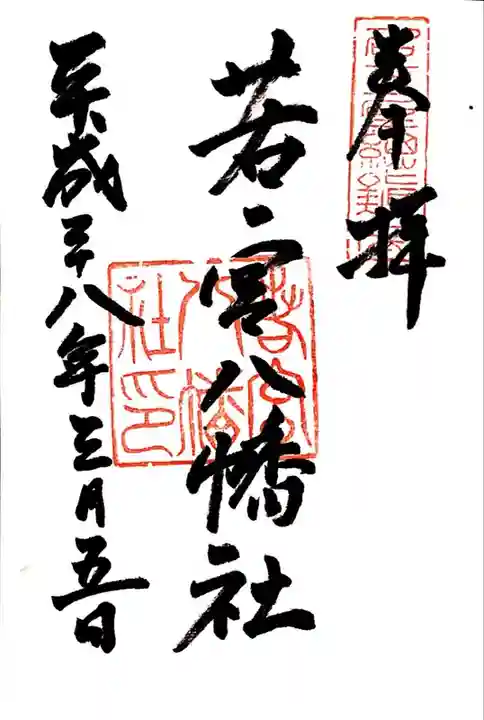 奉拝
若宮八幡社
平成二十八年三月五日
若宮八幡社印